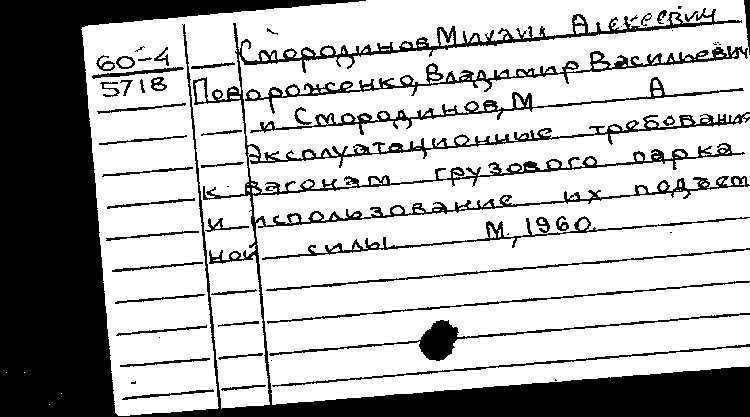 60-4
5718
Смородинов, Михаил Алексеевич
Поворожeнко, Владимир Васильевич
и Смородинов, М А
Эксплуатационные требования
к вагонам грузового парка
и использование их подъем
ной силы М, 1960.